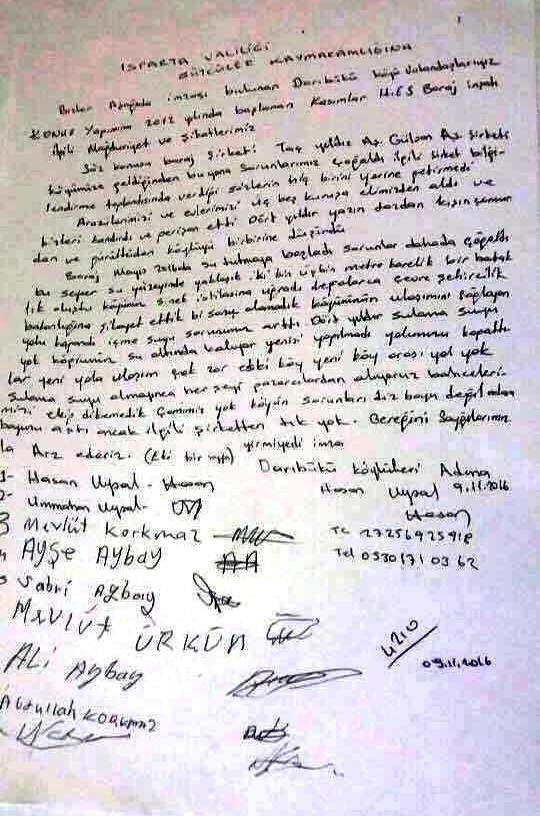 ISPARTA VALİLİĞİ
SÜTÇÜLER KAYMAKAMLIĞINA
Bizler Aşağıda imzası bulunan Darıbükü köyü Vatandaşlarıyız
KONUF Yapımına 2012 yılında başlanan Kasımlar H.E.S Baraj inşatı
ilgili Mağduriyet ve Şikatlerimiz
Söz konusu baraj şirketi Taç yıldız Aş. Gülsan Aş. şirketi
köyümüze geldiğinden bu yana Sorunlarımız çoğaldı ilgili şirket bilgi-
lendirme toplandısında verdiği sözlerin hiç birini yerine getirmedi
Arazilerimizi ve evlerimizi üç beş kuruşa elimizden aldı ve
bizleri kandırdı ve perişan etti Dört yıldır yazın tozdan kışın çamur
dan ve gürültüden köylüyü birbirine düşürdü
Baraj Mayıs 2016da su tutmaya başladı sorunlar dahada çoğaldı
bu sefer su yüzeyinde yaklaşık iki bin üçbin metre karelik bir batak
lık oluştu köyümüz sinek istilasına uğradı defalarca çevre şehircilik
bakanlığına şikayet ettik bi sonuç alamadık köyümüzün ulaşımını sağlayan
yolu kapandı içme suyu sorunumuz arttı Dört yıldır sulama suyu
yok köprümüz su altında kalıyor yenisi yapılmadı yolumuzu kapattı
lar yeni yola ulaşım çok zor eski köy yeni köy arası yol yok
Sulama suyu almayınca her şeyi pazarcılardan alıyoruz bahceleri-
mizi ekip dikemedik Camimiz yok köyün sorunları diz boyu değil adam
boyunu aştı ancak ilgili şirketten tık yok. Gereğini Saygılarımız
la Arz ederiz. (Eki bir sayfa) yirmiyedi imza
Darıbükü köylüleri Adına
1- Hasan Uysal - Hasan
Hasan Uysal 9.11.2016
2- Ummahan Uysal-
Hasan
3 Mevlüt Korkmaz
Tc 27256925918
AYŞE AYBAY
Tel 0530 171 03 62
Sabri Aybay
MEVLÜT ÜRKÜN
4210
ALİ Aybay
09.11.2016
Abdullah KORKMAZ